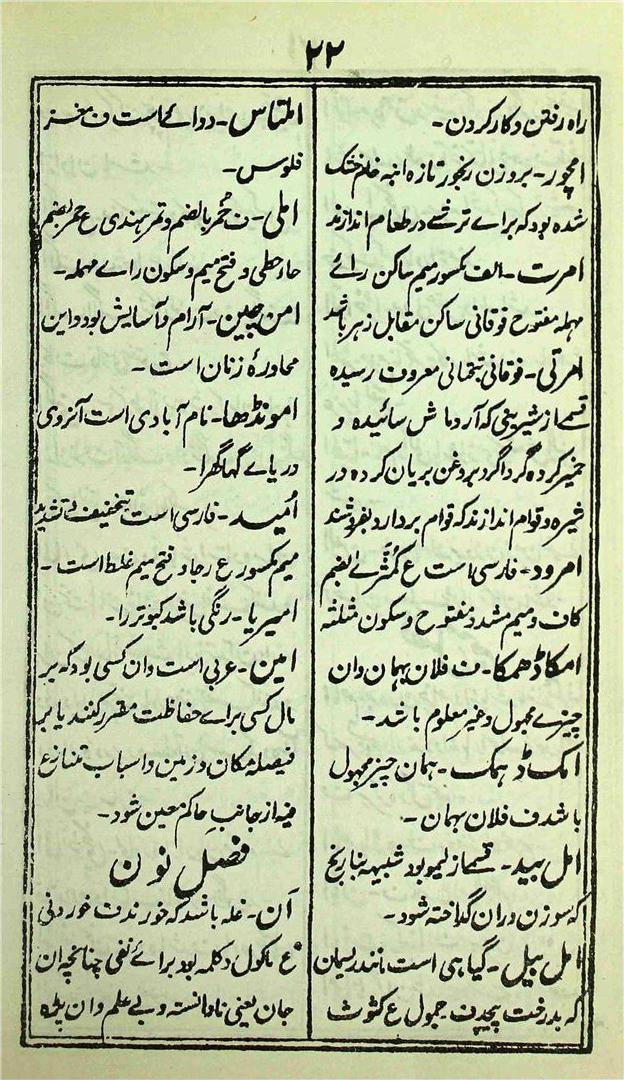 ۲۲
راہ رفتن و کار کردن۔
امچور۔ بروزن رنجور تازہ انبہ خام خشک
شدہ بود کہ براے ترشے در طعام اندازند
امرت۔ الف مکسور میم ساکن رائے
مہملہ مفتوح فوقانی ساکن مقابل زہر باشد
امرتی۔ فوقانی تحتانی معروف رسیدہ
قسمے از شیرینی کہ آرد ماش سائیدہ و
خمیر کردہ گرداگرد بروغن بریان کردہ در
شیرہ و قوام اندازند کہ قوام بردارد بفروشند
امرود۔ فارسی است ع کمثرے بضم
کاف و میم مشدد مفتوح و سکون مثلثہ
امکا ڈھمکا۔ ف فلان بہمان وان
چیزے مجہول و غیر معلوم باشد۔
امک ڈہمک۔ ہمان چیز مجہول
باشد ف فلان بہمان۔
امل بید۔ قسمے از لیمو بود شبیہ بنارنج
کہ سوزن دران گداختہ شود۔
امل بیل۔ گیاہی است مانند ریسمان
کہ بدرخت پیچد ف جمول ع کشوث
املتاس۔ دوائے است ف مغز
فلوس۔
املی۔ ف خمر بالضم و تمر ہندی ع حمر بضم
حاء حطی و فتح میم و سکون راے مہملہ۔
امن چین۔ آرام و آسایش بود و این
محاورۂ زنان است۔
امونڈھا۔ نام آبادی است آنروی
دریاے گھاگھرا۔
اُمید۔ فارسی است بتخفیف و تشدید
میم مکسور ع رجا و فتح میم غلط است۔
امیریا۔ رنگی باشد کبوتر را۔
امین۔ عربی است وان کسی بود کہ بر
مال کسی براے حفاظت مقرر کنند یا بر
فیصلہ مکان و زمین و اسباب تنازع
فیہ از جانبِ حاکم معین شود۔
فصل نون
اَن۔ غلہ باشد کہ خورند ف خوردنی
ع ماکول و کلمہ بود برائے نفی چنانچہ ان
جان یعنی نادانستہ و بے علم و ان پڑہ